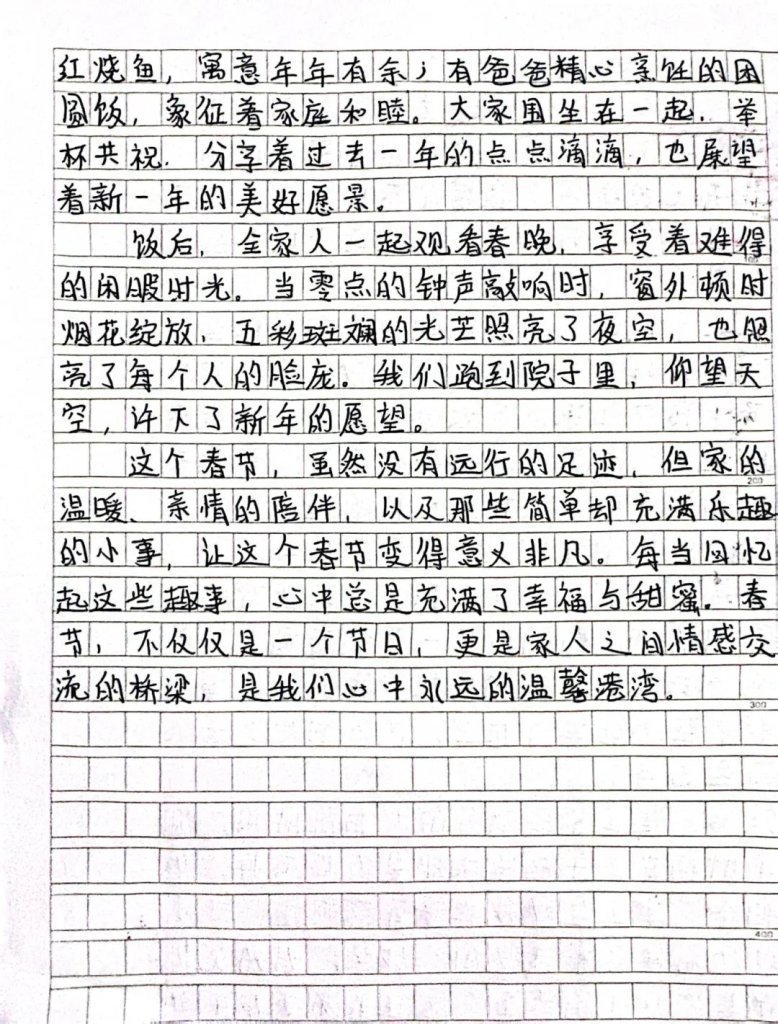 红烧鱼，寓意年年有余；有爸爸精心烹饪的团
圆饭，象征着家庭和睦。大家围坐在一起，举
杯共祝，分享着过去一年的点点滴滴，也展望
着新一年的美好愿景。
饭后，全家人一起观看春晚，享受着难得
的闲暇时光。当零点的钟声敲响时，窗外顿时
烟花绽放，五彩斑斓的光芒照亮了夜空，也照
亮了每个人的脸庞。我们跑到院子里，仰望天
空，许下了新年的愿望。
这个春节，虽然没有远行的足迹，但家的
200
温暖、亲情的陪伴，以及那些简单却充满乐趣
的小事，让这个春节变得意义非凡。每当回忆
起这些趣事，心中总是充满了幸福与甜蜜。春
节，不仅仅是一个节日，更是家人之间情感交
流的桥梁，是我们心中永远的温馨港湾。
300
400